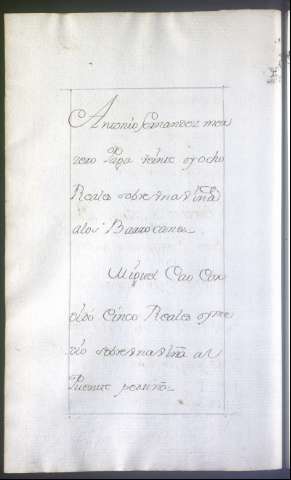 Antonio Fernandez mea
vero Paga veinte y ocho
Reales sobre vna viña
alos Barrocanes.
Miguel Cao
Cinco Reales y me
dio sobre vna viña al
Puente pedriña.